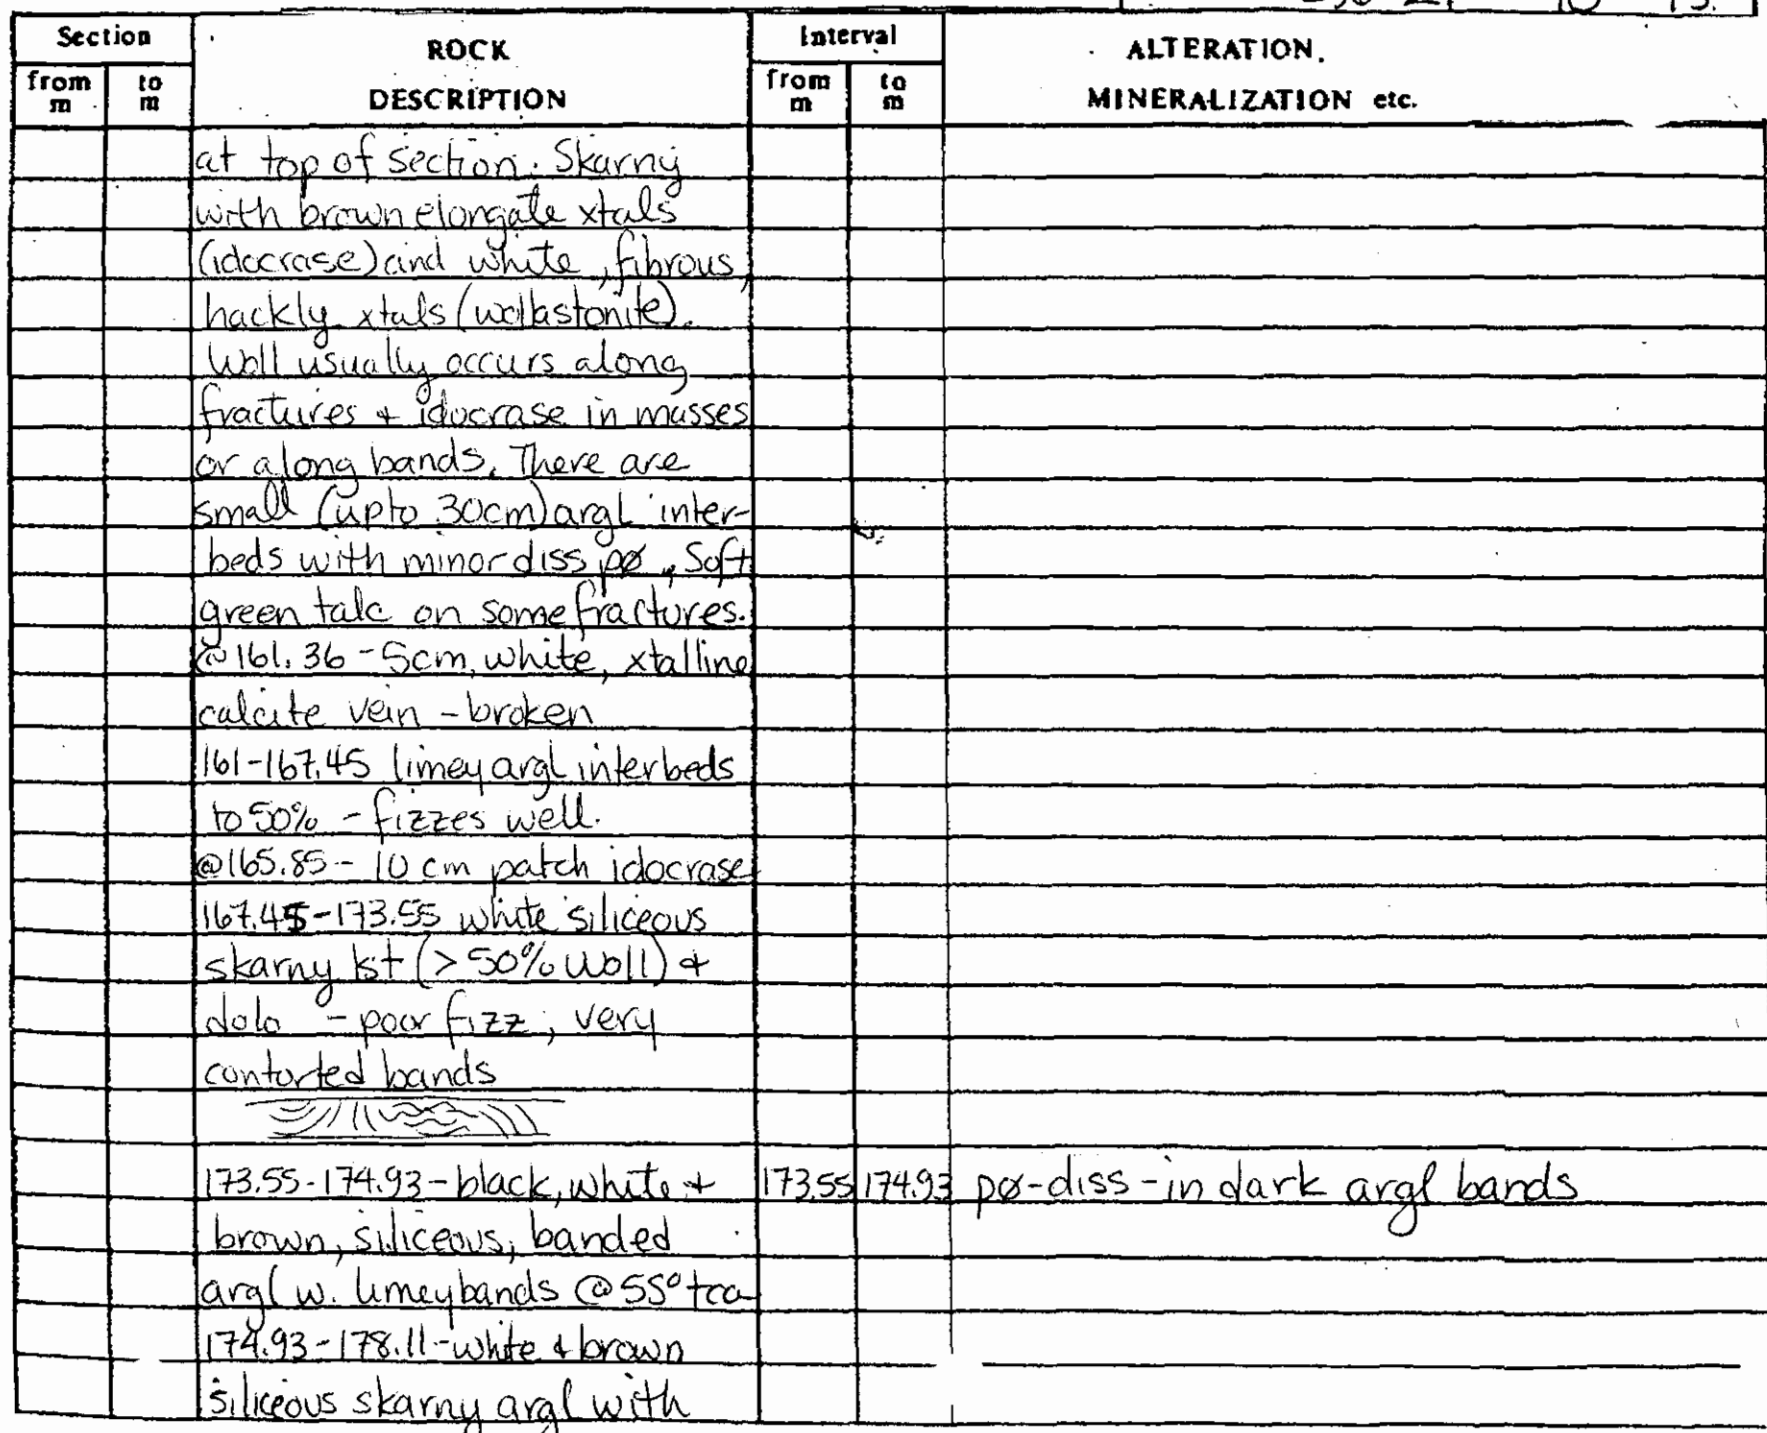 Section
ROCK
DESCRIPTION
Interval
ALTERATION.
MINERALIZATION etc.
from
m
to
m
from
m
to
m
at top of section. Skarny
with brown elongate xtals
(idocrase) and white, fibrous,
hackly xtals (wollastonite).
Woll usually occurs along
fractures + idocrase in masses
or along bands. There are
small (upto 30cm) argl inter-
beds with minor diss pø, Soft
green talc on some fractures.
@ 161.36 - 5cm, white, xtalline
calcite vein - broken
161-167.45 limey argl interbeds
to 50% - fizzes well.
@165.85 - 10 cm patch idocrase
167.45-173.55 white siliceous
skarny lst (> 50% woll) +
dolo - poor fizz, very
contorted bands
173.55-174.93 - black, white + 173.55 174.93 pø-diss - in dark argl bands
brown, siliceous, banded
argl w. limey bands @ 55° tca
174.93-178.11 - white + brown
siliceous skarny argl with